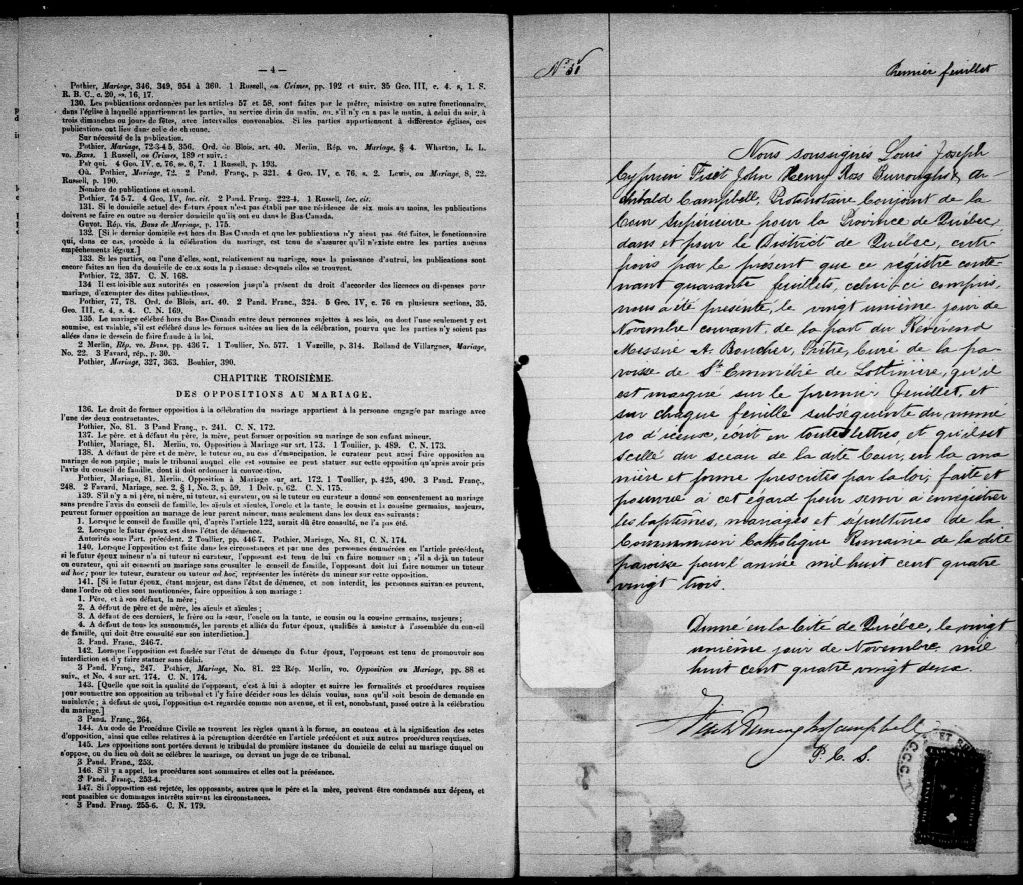 — 4 —
Pothier, Mariage, 346, 349, 954 à 360. 1 Russell, on Crimes, pp. 192 et suiv. 35 Geo. III, c. 4. s, 1. S.
R. B. C., c. 20, ss. 16, 17.
130. Les publications ordonnées par les articles 57 et 58, sont faites par le prêtre, ministre ou autre fonctionnaire,
dans l'église à laquelle appartiennent les parties, au service divin du matin, ou s'il n'y en a pas le matin, à celui du soir, à
trois dimanches ou jours de fêtes, avec intervalles convenables. Si les parties appartiennent à différentes églises, ces
publications ont lieu dans celle de chacune.
Sur nécessité de la publication.
Pothier, Mariage, 72-3-4 5, 356. Ord. de Blois, art. 40. Merlin, Rép. vo. Mariage, § 4. Wharton, L. L.
vo. Bans. 1 Russell, on Crimes, 189 et suiv. :
Par qui. 4 Geo. IV, c. 76, ss. 6, 7. 1 Russell, p. 193.
Où. Pothier, Mariage, 72. 2 Pand. Franç., p. 321. 4 Geo. IV, c. 76, s. 2. Lewis, on Mariage, 8, 22.
Russell, p. 190.
Nombre de publications et quand.
Pothier, 74 5-7. 4 Geo, IV, loc. cit. 2 Pand. Franç. 222-4. 1 Russell, loc. cit.
131. Si le domicile actuel des futurs époux n'est pas établi par une résidence de six mois au moins, les publications
doivent se faire en outre au dernier domicile qu'ils ont eu dans le Bas-Canada.
Guyot. Rép. vis. Bans de Mariage, p. 175.
132. [Si le dernier domicile est hors du Bas Canada et que les publications n'y aient pas été faites, le fonctionnaire
qui, dans ce cas, procède à la célébration du mariage, est tenu de s'assurer qu'il n'existe entre les parties aucuns
empêchements légaux.]
133. Si les parties, ou l'une d'elles, sont, relativement au mariage, sous la puissance d'autrui, les publications sont
encore faites au lieu du domicile de ceux sous la puissance desquels elles se trouvent.
Pothier, 72, 357. C. N. 168.
134 Il est loisible aux autorités en possession jusqu'à présent du droit d'accorder des licences ou dispenses pour
mariage, d'exempter des dites publications.
Pothier, 77, 78. Ord. de Blois, art. 40. 2 Pand. Franc., 324. 5 Geo. IV, c. 76 en plusieurs sections, 35.
Geo. III, c. 4, s. 4. C. N. 169.
135. Le mariage célébré hors du Bas-Canada entre deux personnes sujettes à ses lois, ou dont l'une seulement y est
soumise, est valable, s'il est célébré dans les formes usitées au lieu de la célébration, pourvu que les parties n'y soient pas
allées dans le dessein de faire fraude à la loi.
2 Merlin, Rép. vo. Bans, pp. 436 7. 1 Toullier, No. 577. 1 Vazeille, p. 314. Rolland de Villargues, Mariage,
No. 22. 3 Favard, rép., p. 30.
Pothier, Mariage, 327, 363. Bouhier, 390.
CHAPITRE TROISIÈME.
DES OPPOSITIONS AU MARIAGE.
136. Le droit de former opposition à la célébration du mariage appartient à la personne engagée par mariage avec
l'une des deux contractantes.
Pothier, No. 81. 3 Pand Franç., p. 241. C. N. 172.
137. Le père, et à défaut du père, la mère, peut former opposition au mariage de son enfant mineur.
Pothier, Mariage, 81. Merlin, vo. Opposition à Mariage sur art. 173. 1 Toullier, p. 489. C. N. 173.
138. A défaut de père et de mère, le tuteur ou, au cas d'émancipation, le curateur peut aussi faire opposition au
mariage de son pupile ; mais le tribunal auquel elle est soumise ne peut statuer sur cette opposition qu'après avoir pris
l'avis du conseil de famille, dont il doit ordonner la convocation.
Pothier, Mariage, 81. Merlin. Opposition à Mariage sur art. 172. 1 Toullier, p. 425, 490. 3 Pand. Franç.,
248. 2 Favard, Mariage, sec. 2, § 1, No. 3, p. 59. 1 Delv. p. 62. C. N. 175.
139. S'il n'y a ni père, ni mère, ni tuteur, ni curateur, ou si le tuteur ou curateur a donné son consentement au mariage
sans prendre l'avis du conseil de famille, les aïeuls et aïeules, l'oncle et la tante, le cousin et la cousine germains, majeurs,
peuvent former opposition au mariage de leur parent mineur, mais seulement dans les deux cas suivants :
1. Lorsque le conseil de famille qui, d'après l'article 122, aurait dû être consulté, ne l'a pas été.
2. Lorsque le futur époux est dans l'état de démence.
Autorités sous l'art. précédent. 2 Toullier, pp. 446-7. Pothier, Mariage, No. 81, C. N. 174.
140. Lorsque l'opposition est faite dans les circonstances et par une des personnes énumérées en l'article précédent,
si le futur époux mineur n'a ni tuteur ni curateur, l'opposant est tenu de lui en faire nommer un ; s'il a déjà un tuteur
ou curateur, qui ait consenti au mariage sans consulter le conseil de famille, l'opposant doit lui faire nommer un tuteur
ad hoc ; pour les tuteur, curateur ou tuteur ad hoc, représenter les intérêts du mineur sur cette opposition.
141. [Si le futur époux, étant majeur, est dans l'état de démence, et non interdit, les personnes suivantes peuvent,
dans l'ordre où elles sont mentionnées, faire opposition à son mariage :
1. Père, et à son défaut, la mère ;
2. A défaut de père et de mère, les aïeuls et aïeules ;
3. A défaut de ces derniers, le frère ou la sœur, l'oncle ou la tante, le cousin ou la cousine germains, majeurs ;
4. A défaut de tous les susnommés, les parents et alliés du futur époux, qualifiés à assister à l'assemblée du conseil
de famille, qui doit être consulté sur son interdiction.]
3. Pand. Franc., 246-7.
142. Lorsque l'opposition est fondée sur l'état de démence du futur époux, l'opposant est tenu de promouvoir son
interdiction et d'y faire statuer sans délai.
3 Pand. Franç., 247. Pothier, Mariage, No. 81. 22 Rép. Merlin, vo. Opposition au Mariage, pp. 88 et
suiv., et No. 4 sur art. 174. C. N. 174.
143. [Quelle que soit la qualité de l'opposant, c'est à lui à adopter et suivre les formalités et procédures requises
pour soumettre son opposition au tribunal et l'y faire décider sous les délais voulus, sans qu'il soit besoin de demande en
mainlevée ; à défaut de quoi, l'opposition est regardée comme non avenue, et il est, nonobstant, passé outre à la célébration
du mariage.]
3 Pand. Franç., 264.
144. Au code de Procédure Civile se trouvent les règles quant à la forme, au contenu et à la signification des actes
d'opposition, ainsi que celles relatives à la péremption décrétée en l'article précédent et aux autres procédures requises.
145. Les oppositions sont portées devant le tribunal de première instance du domicile de celui au mariage duquel on
s'oppose, ou du lieu où doit se célébrer le mariage, ou devant un juge de ce tribunal.
3 Pand. Franc., 253.
146. S'il y a appel, les procédures sont sommaires et elles ont la préséance.
3 Pand. Franç., 253-4.
147. Si l'opposition est rejetée, les opposants, autres que le père et la mère, peuvent être condamnés aux dépens, et
sont passibles de dommages intérêts suivant les circonstances.
3 Pand. Franç. 255-6. C. N. 179.
Premier feuillet
Nous soussignés Louis Joseph
Cyprien Fiset John Henry Ross Burroughs & Ar-
chibald Campbell, Protonotaire Conjoint de la
Cour Supérieure pour la Province de Québec,
dans et pour le District de Québec, certi-
fions par le présent que ce régistre conte-
nant quarante feuillets, celui-ci compris,
nous a été présenté, le vingt unième jour de
Novembre courant, de la part du Révérend
Messire A. Boucher, Prêtre, Curé de la pa-
roisse de St. Emmélie de Lotbinière, qu'il
est marqué sur le premier feuillet, et
sur chaque feuille subséquente du numé-
ro d'iceux, écrit en toutes lettres, et qu'il est
scellé du sceau de la dite Cour, en la ma-
nière et forme prescrites par la loi, faite et
pourvue à cet égard pour servir à enregistrer
les baptêmes, mariages et sépultures de la
Communion Catholique Romaine de la dite
paroisse pour l'année mil huit cent quatre
vingt trois.
Donné en la Cité de Québec, le vingt
unième jour de Novembre mil
huit cent quatre vingt deux.
Fiset Burroughs Campbell
P. C. S.